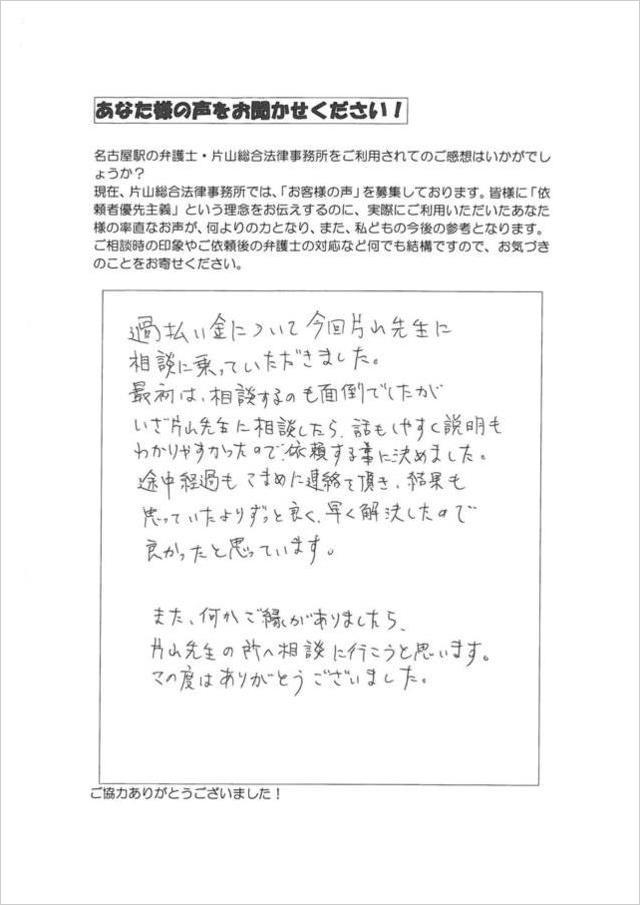 あなた様の声をお聞かせください！
名古屋駅の弁護士・片山総合法律事務所をご利用されてのご感想はいかがでし
ょうか？
現在、片山総合法律事務所では、「お客様の声」を募集しております。皆様に「依
頼者優先主義」という理念をお伝えするのに、実際にご利用いただいたあなた
様の率直なお声が、何よりの力となり、また、私どもの今後の参考となります。
ご相談時の印象やご依頼後の弁護士の対応など何でも結構ですので、お気づき
のことをお寄せください。
過払い金について今回片山先生に
相談に乗っていただきました。
最初は、相談するのも面倒でしたが
いざ片山先生に相談したら、話もしやすく説明も
わかりやすかったので、依頼する事に決めました。
途中経過もこまめに連絡を頂き、結果も
思っていたよりずっと良く、早く解決したので
良かったと思っています。
また、何かご縁がありましたら、
片山先生の所へ相談に行こうと思います。
この度はありがとうございました。
ご協力ありがとうございました！